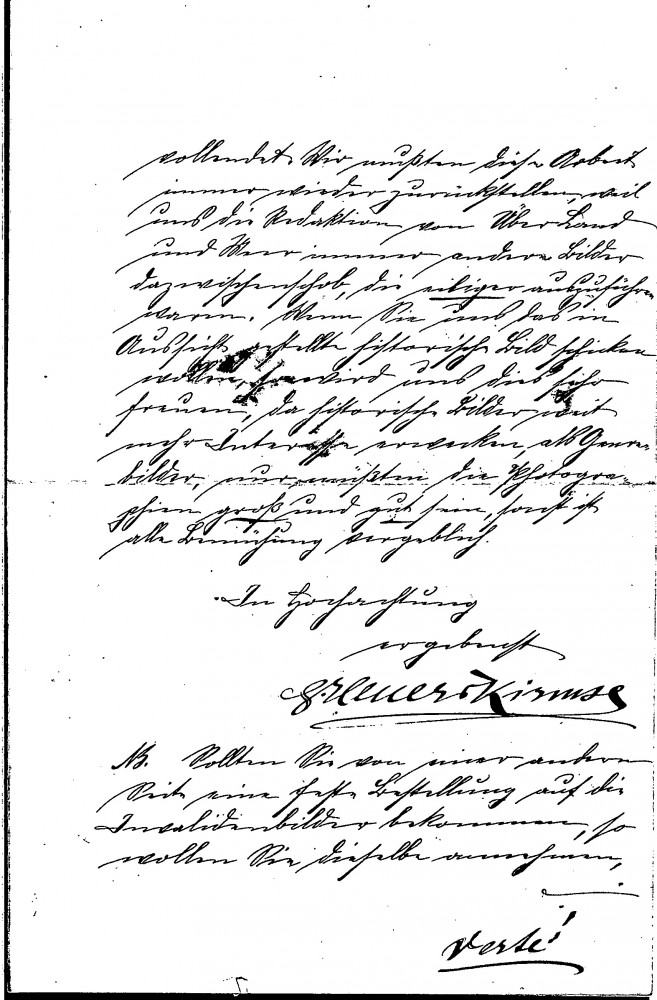 vollendet. Wir mußten diese Arbeit
immer wieder zurückstellen, weil
uns die Redaktion von Über Land
und Meer immer andere Bilder
dazwischenschob, die eiliger auszuführen
waren. Wenn Sie uns das in
Aussicht gestellte historische Bild schicken
wollen, so wird uns dies sehr
freuen, da historische Bilder weit
mehr Interesse erwecken, als Genre-
bilder, nur müßten die Photogra-
phien groß und gut sein, sonst ist
alle Bemühung vergeblich.
In Hochachtung
ergebenst
Heuer & Kirmse
NB. Sollten Sie von einer andern
Seite eine feste Bestellung auf die
Invalidenbilder bekommen, so
wollen Sie dieselbe annehmen,
verte!